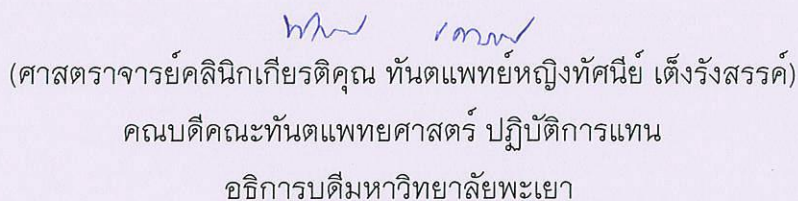 (ศาสตราจารย์คลินิกเกียรติคุณ ทันตแพทย์หญิงทัศนีย์ เต็งรังสรรค์)
คณบดีคณะทันตแพทยศาสตร์ ปฏิบัติการแทน
อธิการบดีมหาวิทยาลัยพะเยา